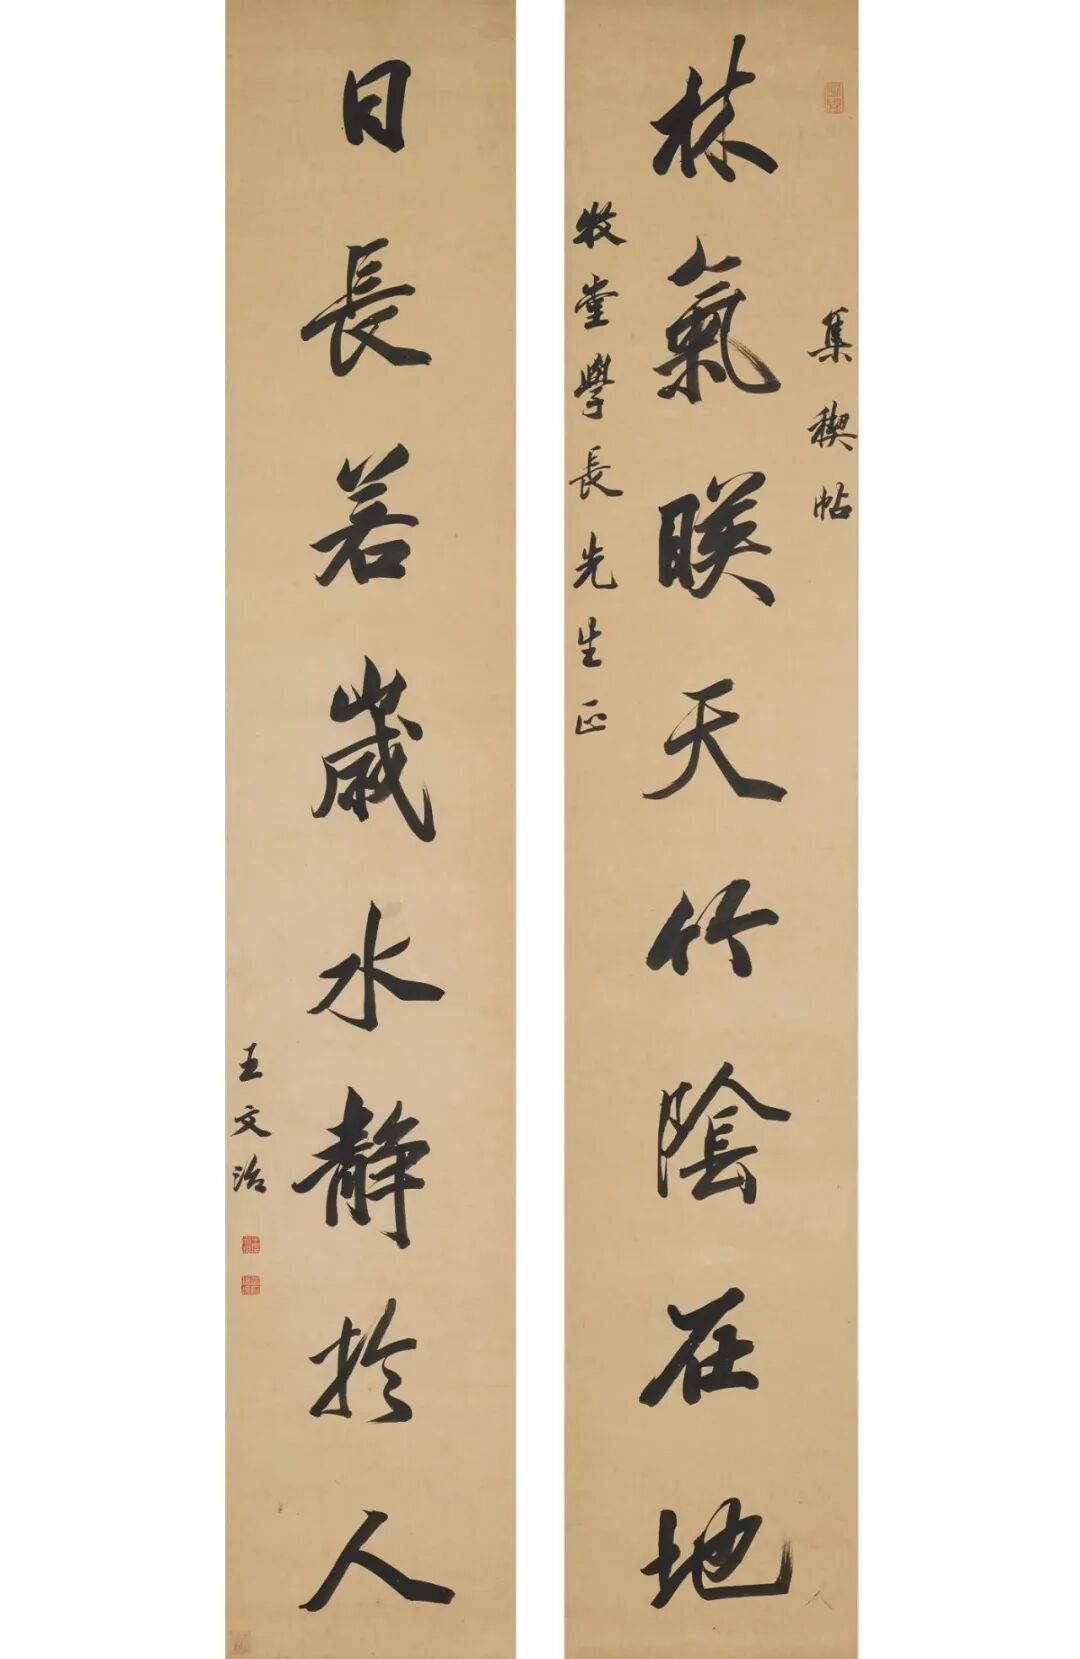 集稧帖
林氣暎天竹陰在地
牧堂學長先生正
日長若歲水静於人
王文治